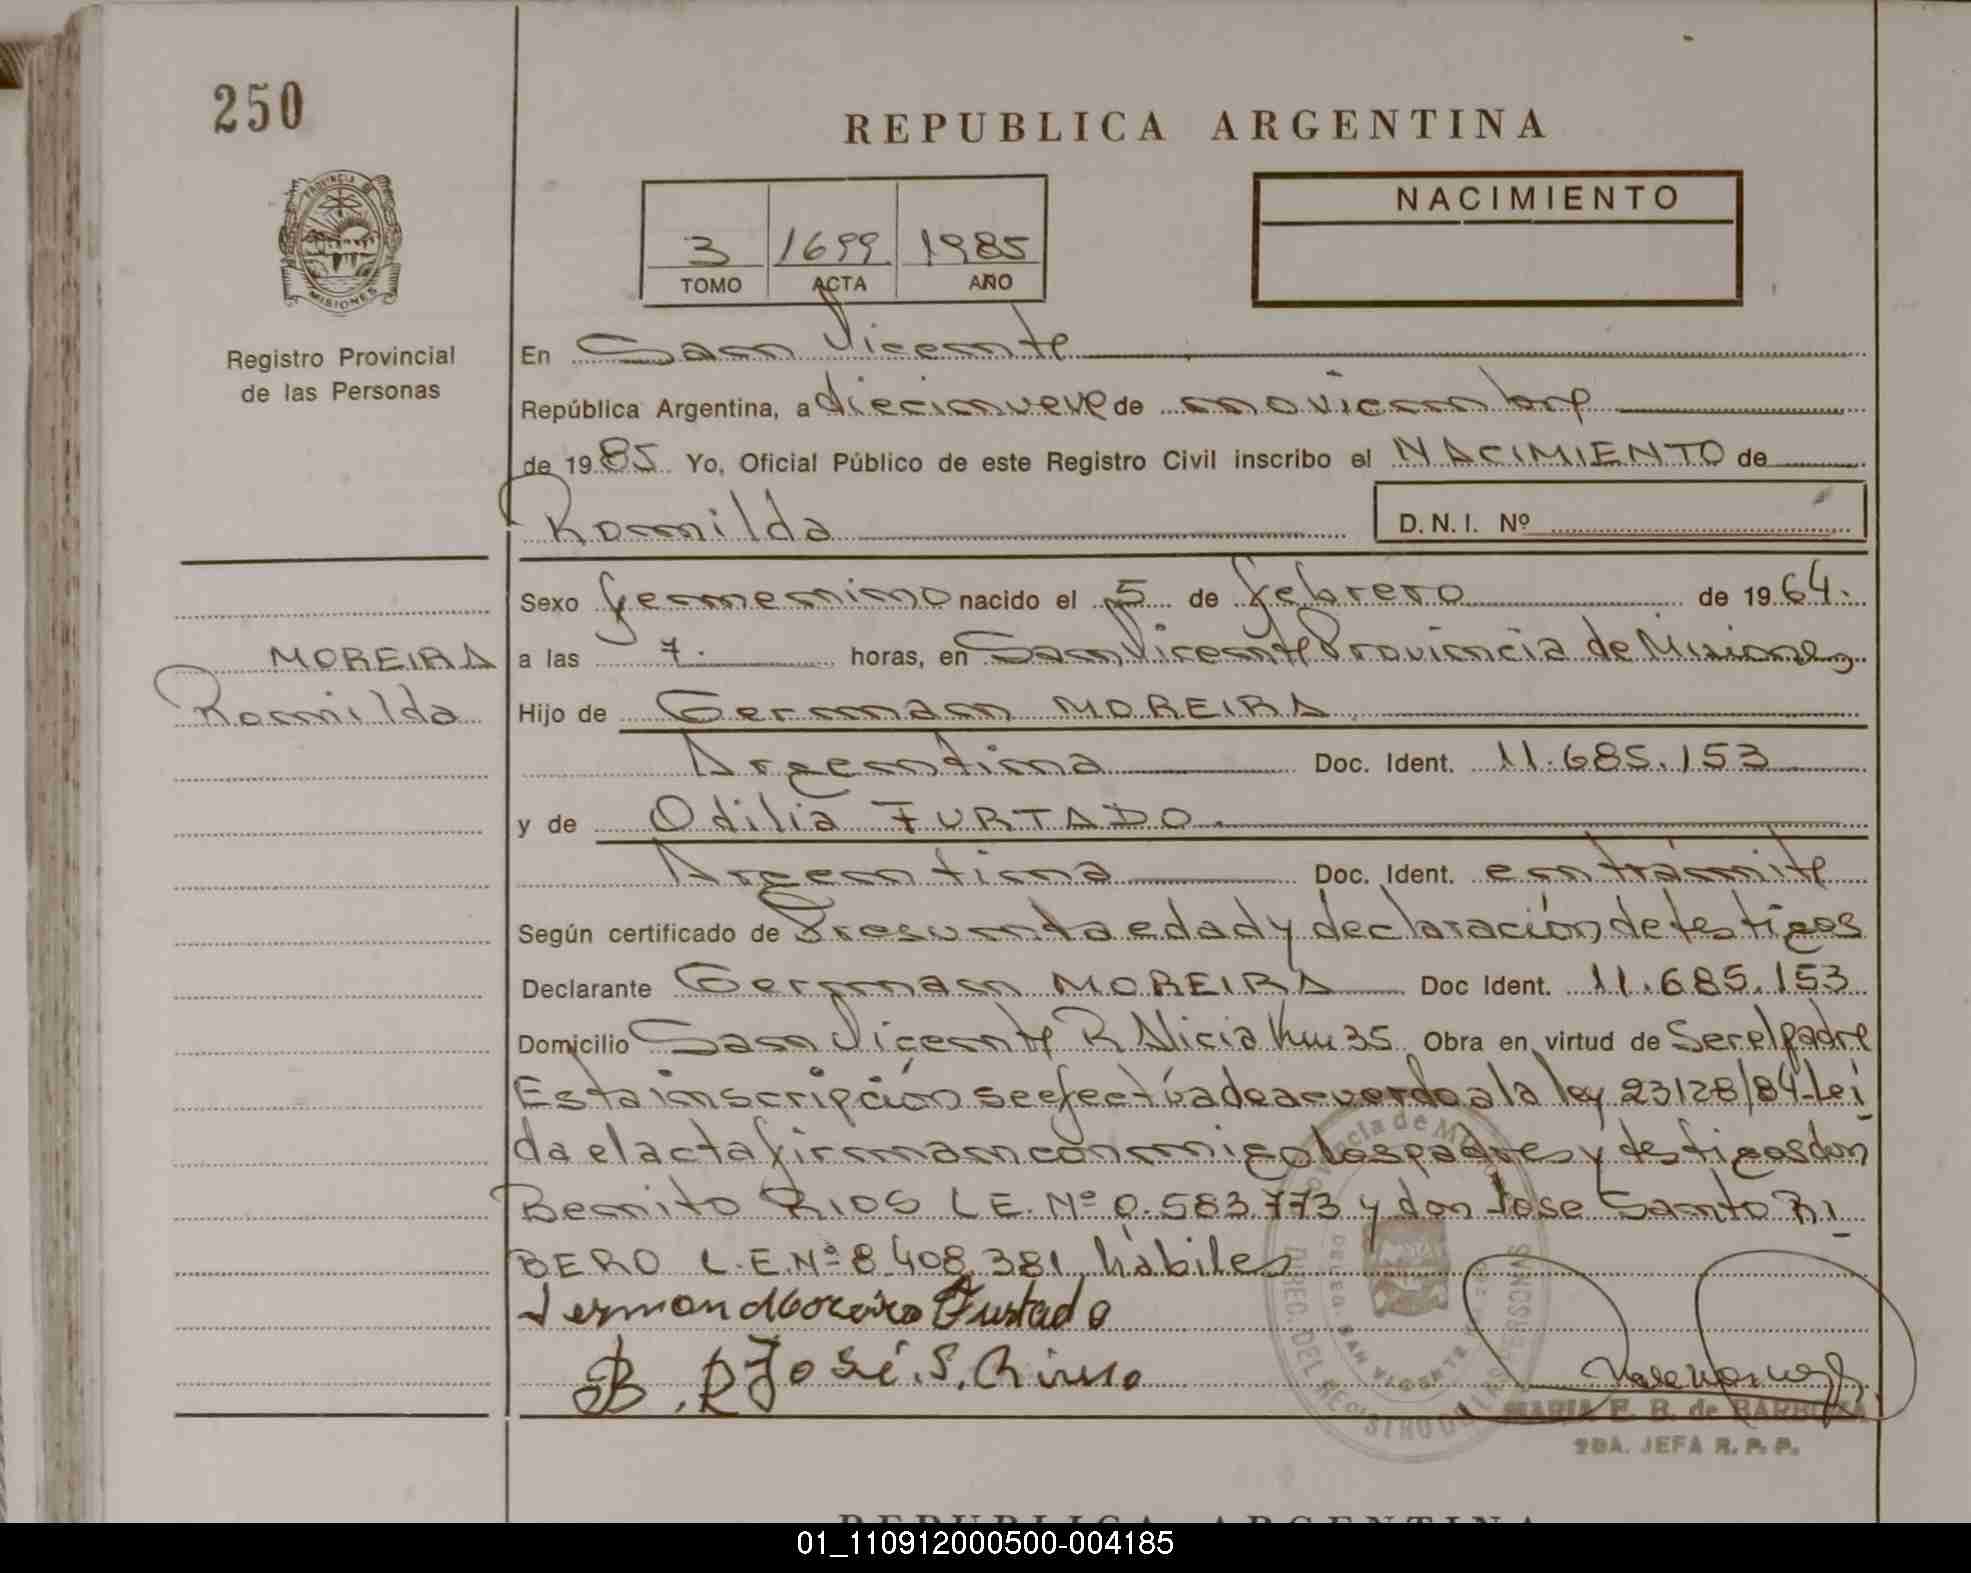 250
REPUBLICA ARGENTINA
PROVINCIA DE
MISIONES
Registro Provincial
de las Personas
3 1699 1985
TOMO ACTA AÑO
NACIMIENTO
En San Vicente
República Argentina, a diecinueve de noviembre
de 1985 Yo, Oficial Público de este Registro Civil inscribo el NACIMIENTO de
Romilda
D.N.I. Nº
MOREIRA
Romilda
Sexo femenino nacido el 5 de febrero de 1964.
a las 7. horas, en San Vicente Provincia de Misiones
Hijo de German MOREIRA
Argentina Doc. Ident. 11.685.153
y de Odilia FURTADO.
Argentina Doc. Ident. en trámite
Según certificado de Presunta edad y declaración de testigos
Declarante German MOREIRA Doc Ident. 11.685.153
Domicilio San Vicente R Alicia Km 35 Obra en virtud de Ser el padre
Esta inscripción se efectúa de acuerdo a la ley 23128/84-Lei
da el acta firman conmigo los padres y testigos don
Benito RIOS L.E. Nº 0.583.773 y don Jose Santo RI
BERO L.E.Nº 8.408.381, hábiles
German Moreira Furtado
B. R José. S. 
MARIA E. B. de BARBOZA
2DA. JEFA R. P. P.
REPUBLICA ARGENTINA
01_110912000500-004185